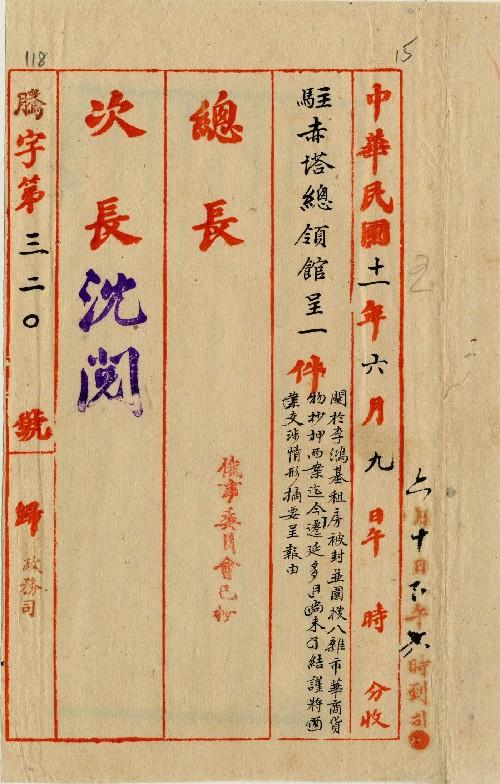 118
15
六月十日下午六時到司
中華民國十一年六月九日午時分收
駐赤塔總領館呈一件
關於李鴻基租房被封並圍搜八雜市華商貨
物抄押兩案迄今遷延多日尚未了結謹將
兩案交涉情形摘要呈報由
俄事委員會已抄
總長
次長
沈閱
騰字第三二〇號
歸政務司